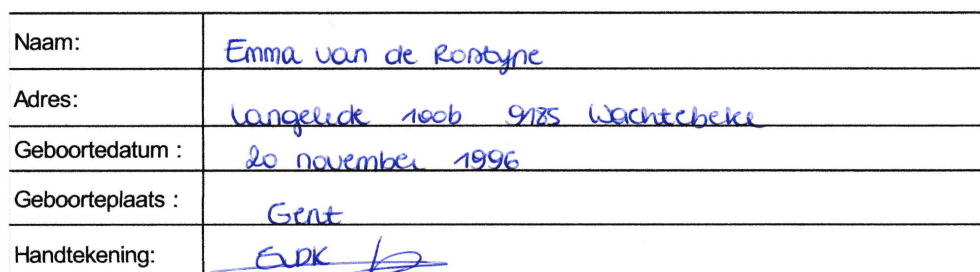 Naam: Emma van de Rostyne
Adres: Langelede 100b 9185 Wachtebeke
Geboortedatum : 20 november 1996
Geboorteplaats : Gent
Handtekening: EVDK